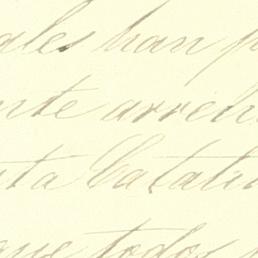 ales han p
nte arren
ta Catali
que todos